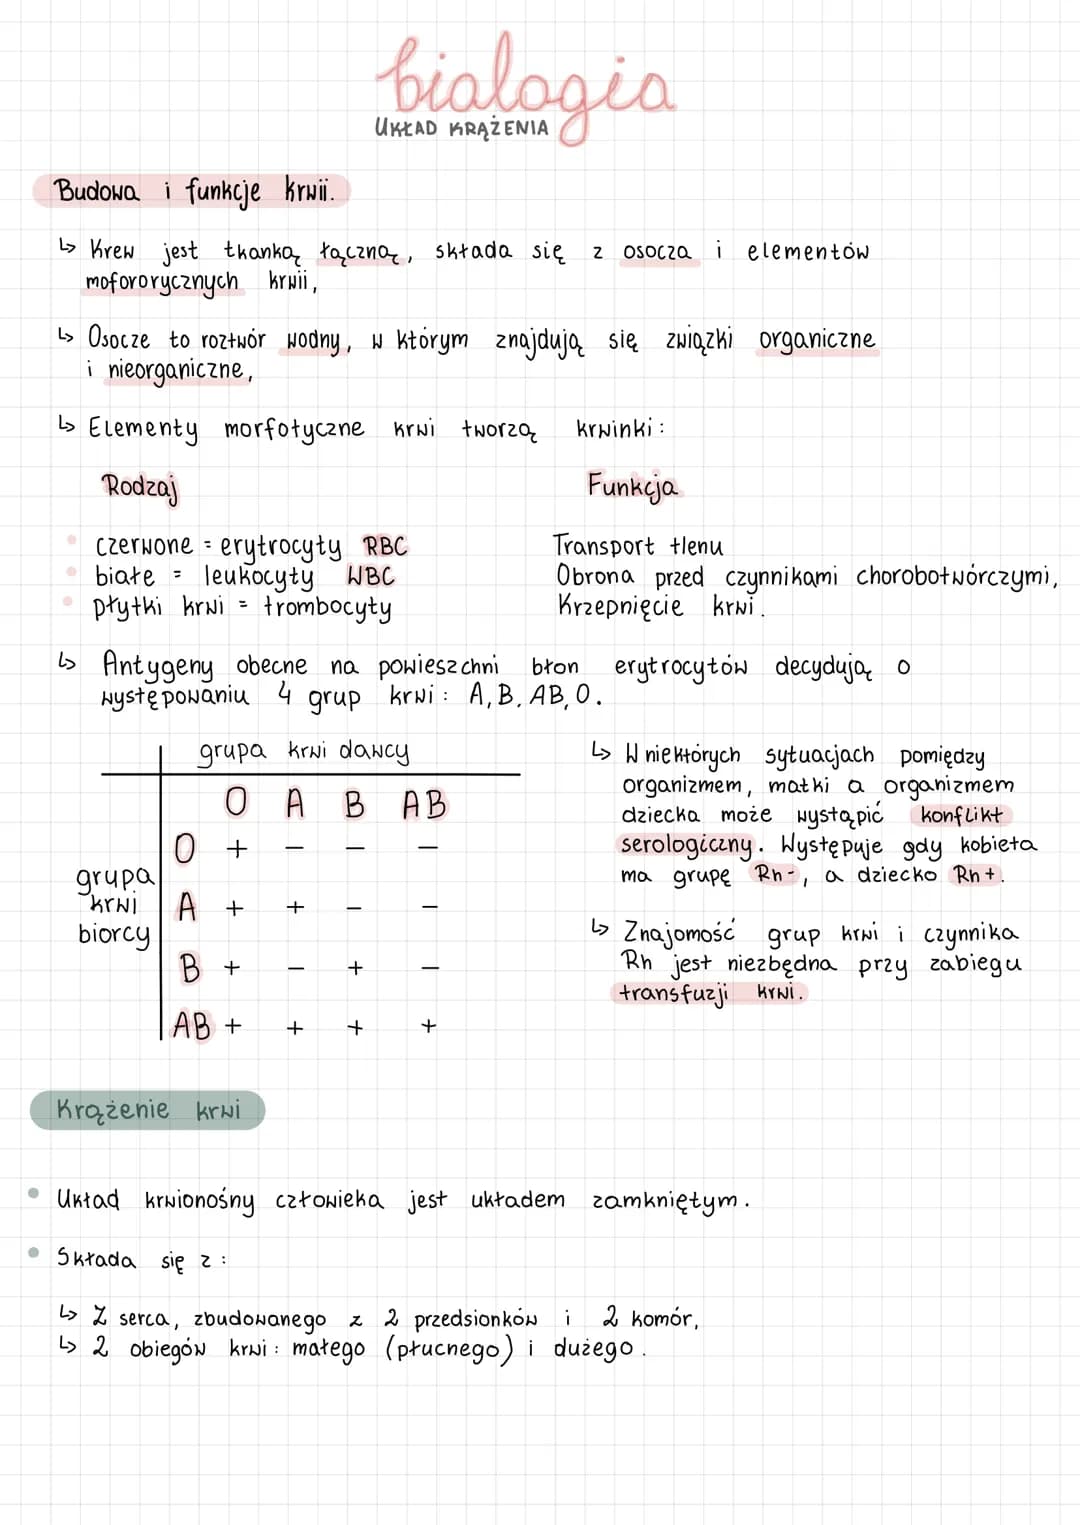 biologia
UKŁAD KRĄŻENIA
Budowa i funkcje krwii.
↳ Krew jest tkanką łączną, składa się z osocza i elementów
mofororycznych krwii,
↳ Osocze to roztwór wodny, w którym znajdują się związki organiczne
i nieorganiczne,
↳ Elementy morfotyczne krwi tworzą krwinki:
Rodzaj Funkcja
• czerwone = erytrocyty RBC Transport tlenu
• białe = leukocyty WBC Obrona przed czynnikami chorobotwórczymi,
• płytki krwi = trombocyty Krzepnięcie krwi.
↳ Antygeny obecne na powieszchni błon erytrocytów decydują o
występowaniu 4 grup krwi: A, B, AB, O.
grupa krwi dawcy
O A B AB
O + - - -
grupa krwi biorcy
A + + - -
B + - + -
AB + + + +
↳ W niektórych sytuacjach pomiędzy
organizmem, matki a organizmem
dziecka może wystąpić konflikt
serologiczny. Występuje gdy kobieta
ma grupę Rn-, a dziecko Rn+.
↳ Znajomość grup krwi i czynnika
Rh jest niezbędna przy zabiegu
transfuzji krwi.
Krążenie krwi
• Układ krwionośny człowieka jest układem zamkniętym.
• Składa się z:
↳ Z serca, zbudowanego z 2 przedsionków i 2 komór,
↳ 2 obiegów krwi: małego (płucnego) i dużego.